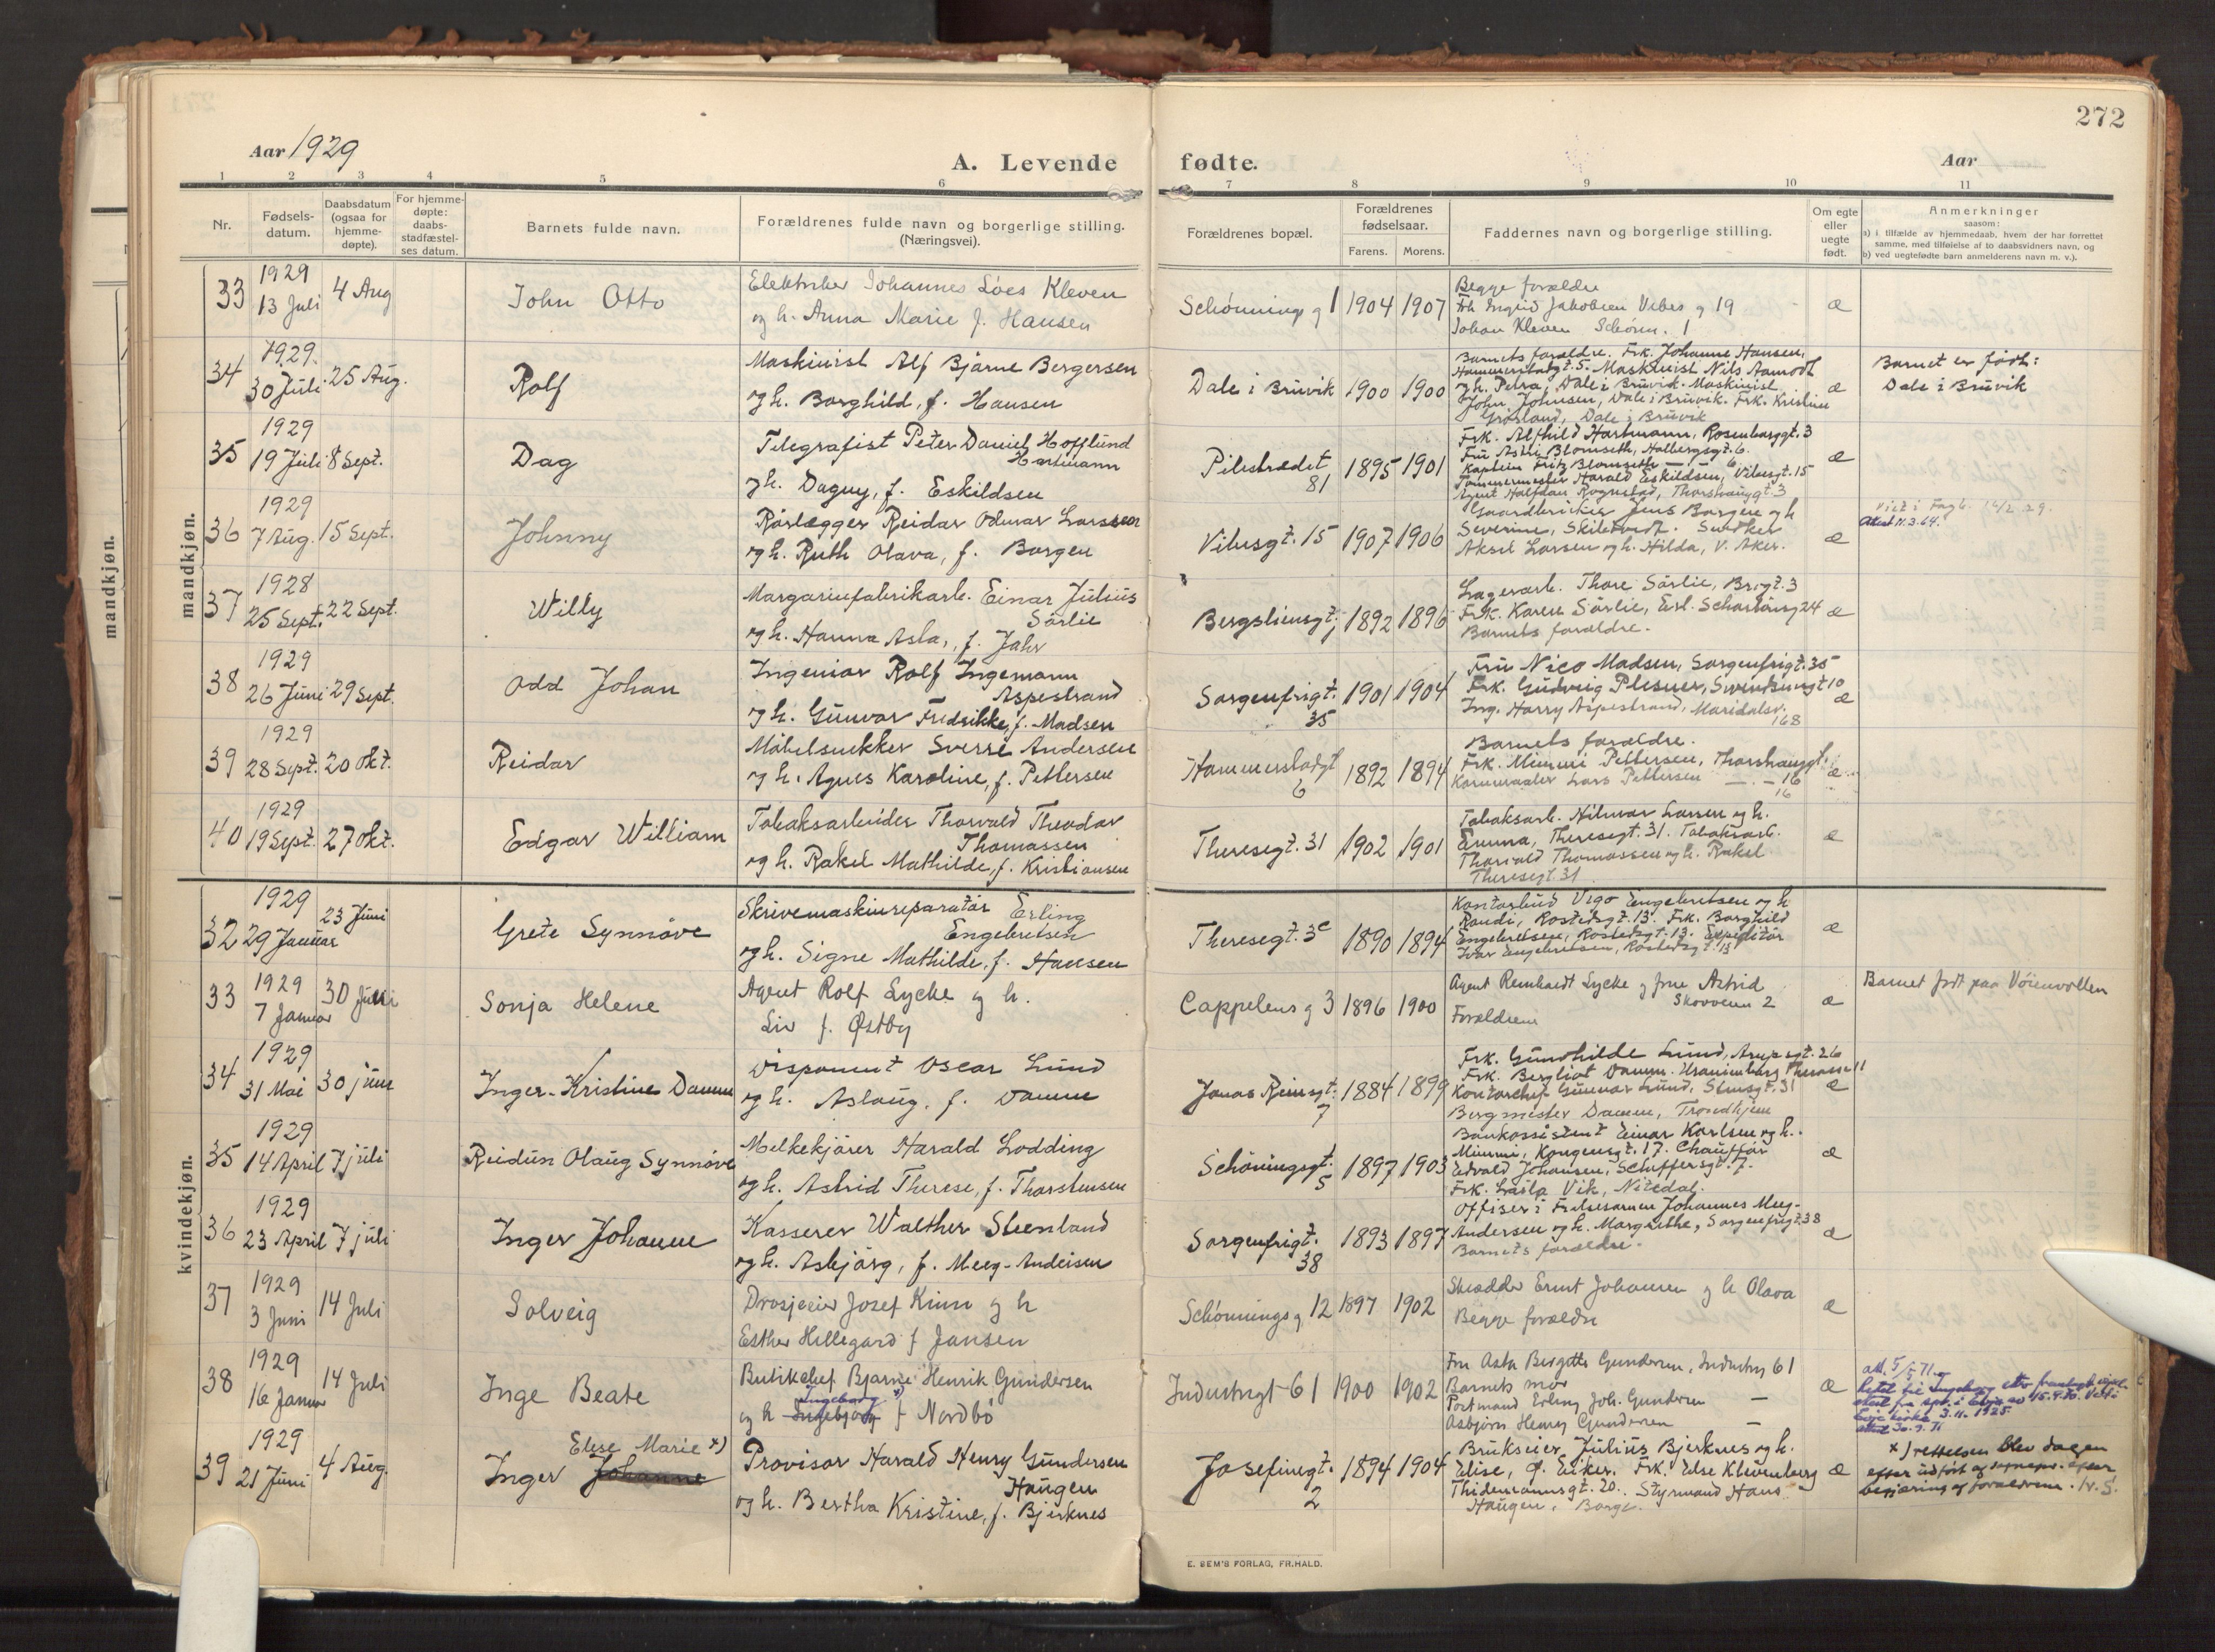 272
Aar 1929
A. Levende fødte.
Aar
1 2 3 4 5 6 7 8 9 10 11
Nr.
Fødsels-
datum.
Daabsdatum
(ogsaa for
hjemme-
døpte).
For hjemme-
døpte:
daabs-
stadfæstel-
ses datum.
Barnets fulde navn.
Forældrenes fulde navn og borgerlige stilling.
(Næringsvei).
Forældrenes bopæl.
Forældrenes
fødselsaar.
Farens. Morens.
Faddernes navn og borgerlige stilling.
Om egte
eller
uegte
født.
Anmerkninger
saasom:
a) i tilfælde av hjemmedaab, hvem der har forrettet
samme, med tilføielse af to daabsvidners navn, og
b) ved uegtefødte barn anmelderens navn m. v.).
mandkjøn.
mandkjøn.
33
1929
13 Juli
4 Aug
John Otto
Elektriker Johannes Loes Kleven
og h. Anna Marie f. Hansen
Schønnings g 1
1904 1907
Begge forældre
Frk Ingrid Jakobsen Vibes g 19
Johan Kleven Schønn. 1
æ
34
1929.
30 Juli
25 Aug.
Rolf
Maskinist Alf Bjarne Bergersen
og h. Borghild, f. Hansen
Dale i Bruvik
1900 1900
Barnets forældre. Frk. Johanne Hansen,
Hammerstadgt. 5. Maskinist Nils Aamodt
og h. Petra, Dale i Bruvik. Maskinist
John Johnsen, Dale i Bruvik. Frk. Kristine
Dale i Bruvik
æ
Barnet er født:
Dale i Bruvik
35
1929
19 Juli
8 Sept.
Dag
Telegrafist Peter Daniel Hofflund
Hartmann
og h. Dagny, f. Eskildsen
Pilestrædet
81
1895 1901
Frk. Alfhild Hartmann, Rosenborggt. 3
Fru Astri Blomseth, Holbergsgt. 6.
Kaptein Fritz Blomseth — 6
Tømmermester Harald Eskildsen, Vibesgt. 15
Agent Halfdan Rognstad, Thorshauggt. 3
æ
36
1929
7 Aug.
15 Sept.
Johnny
Rørlægger Reidar Odmar Larssen
og h. Ruth Olava, f. Borgen
Vibesgt. 15
1907 1906
Gaardbruker Jens Borgen og h
Severine, Skiletvedt. Snedker
Aksel Larsen og h. Hilda, V. Aker.
æ
Viet i Fagb. 14/2 29.
Attest 11.3.64.
37
1928
25 Sept.
22 Sept.
Willy
Margarinfabrikarb. Einar Julius
Sørlie
og h. Hanna Asta, f. Jahr
Bergsliensgt. 1
1892 1896
Lagerarb. Thore Sørlie, Brogt. 3
Frk. Karen Sørlie, Erl. Schartaus g 24
Barnets forældre.
æ
38
1929
26 Juni
29 Sept.
Odd Johan
Ingeniør Rolf Ingemann
Aspestrand
og h. Gunvor Fredrikke, f. Madsen
Sorgenfrigt.
35
1901 1904
Fru Nico Madsen, Sorgenfrigt. 35
Frk. Gudveig Plesner, Svendsensgt 10
Ing. Harry Aspestrand, Maridalsv.
168
æ
39
1929
28 Sept.
20 Okt.
Reidar
Møbelsnekker Sverre Andersen
og h. Agnes Karoline, f. Pettersen
Hammerstadgt
6
1892 1894
Barnets forældre.
Frk. Mimmi Pettersen, Thorshauggt.
16
Kornmaaler Lars Pettersen — — 16
æ
40
1929
19 Sept.
27 Okt.
Edgar William
Tobaksarbeider Thorvald Theodor
Thomassen
og h. Rakel Mathilde, f. Kristiansen
Theresegt. 31
1902 1901
Tobaksarb. Hilmar Larsen og h.
Emma, Theresegt. 31. Tobaksarb.
Thorvald Thomassen og h. Rakel
Theresegt. 31
æ
kvindekjøn.
32
1929
29 Januar
23 Juni
Grete Synnøve
Skrivemaskinreparatør Erling
Engebretsen
og h. Signe Mathilde, f. Hansen
Theresegt. 3c
1890 1894
Kontorbud Vigo Engebretsen og h
Randi, Rostedsgt. 13. Frk. Borghild
Engebretsen, Rostedsgt. 13. Expeditør
Ivar Engebretsen, Rostedsgt. 13
æ
33
1929
7 Januar
30 Juni
Sonja Helene
Agent Rolf Lycke og h.
Liv f. Østby
Cappelens g 3
1896 1900
Agent Reinhardt Lycke og frue Astrid
Skovveien 2
Forældrene
æ
Barnet født paa Vøienvollen
34
1929
31 Mai
30 juni
Inger-Kristine Damm
Disponent Oscar Lund
og h. Aslaug, f. Damm
Jonas Reinsgt.
7
1884 1899
Frk. Gunhilde Lund, Arupsgt. 26
Frk. Bergliot Damm. Uranienborg Therasse 11
Kontorchef Gunnar Lund, Stensgt. 31
Bergmester Damm, Trondhjem
æ
35
1929
14 April
7 juli
Reidun Olaug Synnøve
Melkekjører Harald Lodding
og h. Astrid Therese, f. Thorstensen
Schøningsgt.
5
1897 1903
Bankassistent Einar Karlsen og h.
Mimmi, Kongensgt. 17. Chauffør
Edvald Johansen, Schäffersgt. 7.
Frk. Laila Vik, Nitedal.
æ
36
1929
23 April
7 juli
Inger Johanne
Kasserer Walther Steenland
og h. Asbjørg, f. Meeg-Andersen
Sorgenfrigt.
38
1893 1897
Offiser i Frelsesarmeen Johannes Meeg-
Andersen og h. Margrethe, Sorgenfrigt. 38
Barnets forældre.
æ
37
1929
3 Juni
14 Juli
Solveig
Drosjeeier Josef Kinn og h
Esther Hillegard f Jansen
Schønnings g 12
1897 1902
Skrædder Ernst Johansen og h Olava
Begge forældre
æ
38
1929
16 Januar
14 Juli
Inge Beate
Butikchef Bjarne Henrik Gundersen
Ingeborg x)
og h Ingebjørg f Nordbø
Industrigt 61
1900 1902
Fru Asta Birgitte Gundersen, Industrig 61
Barnets mor
Postmand Erling Joh. Gundersen —
Asbjørn Henry Gundersen —
æ
att. 5/5 71.
Rettet til Ingeborg etter fremlagt vigsel
3.11.1925
39
1929
21 Juni
4 Aug.
Elise Marie x)
Inger Johanne
Provisor Harald Henry Gundersen
Haugen
og h. Bertha Kristine, f. Bjerknes
Josefinegt.
2
1894 1904
Brukseier Julius Bjerknes og h.
Elise, Ø. Eiker. Frk. Else Klevenberg
Thidemannsgt. 20. Styrmand Hans
Haugen, Borge.
æ
x) rettelsen blev dagen
efter utført af sognepr. efter
begjæring af forældrene. N.S.
E. SEM'S FORLAG, FR.HALD.